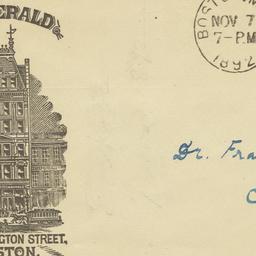 ERALD
BOST
NOV 7
7-PM
1892
Dr. Fra
C
GTON STREET,
STON.